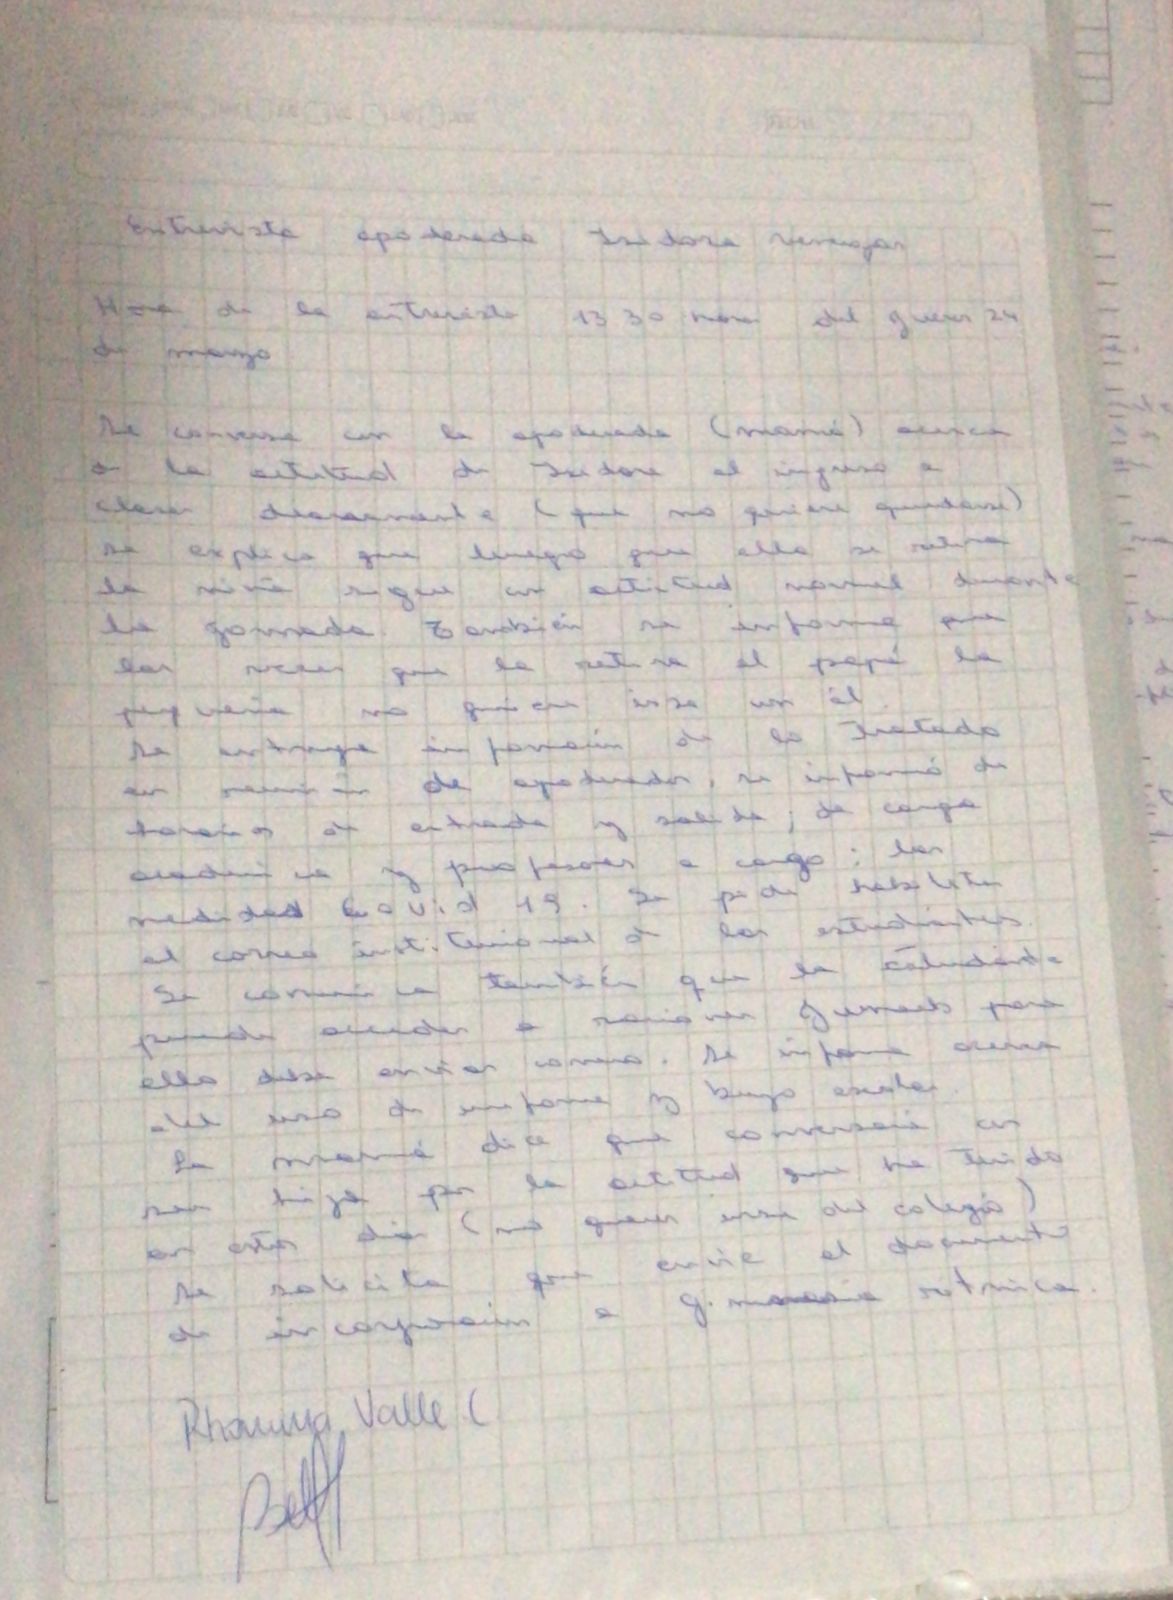 Entrevista apoderada Isidora Venegas
Hora de la entrevista 13 30 horas del jueves 24
de marzo
Se conversa con la apoderada (mamá) acerca
de la actitud de Isidora al ingreso a
clases (que no quiere quedarse)
se explica que luego que ella se retira
la niña sigue con actitud normal durante
la jornada. También se informa que
las veces que la retira el papá la
pequeña no quiere irse con él.
Se entrega información de lo tratado
en reunión de apoderados, se informó de
horarios de entrada y salida; de carga
académica y profesores a cargo; las
medidas Covid 19. Se pide habilitar
el correo institucional de los estudiantes.
Se comunica también que la estudiante
puede acceder a para
ello debe enviar correo. Se informa acerca
del uso de uniforme y buzo escolar.
La mamá dice que conversará con
su hija por la actitud que ha tenido
en estos días (no querer irse del colegio)
Se solicita que envíe el documento
de incorporación a rítmica.
Rhomina Valle C